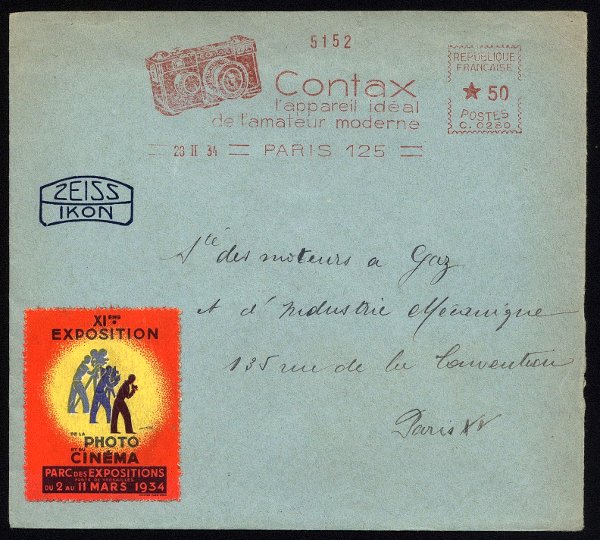 5152
Contax
l'appareil idéal
de l'amateur moderne
REPUBLIQUE
FRANCAISE
★ 50
POSTES
C. 0280
28 II 34 PARIS 125
ZEISS
IKON
Sté des moteurs a Gaz
et d'Industrie Mécanique
135 rue de la Convention
Paris XV
XIEME
EXPOSITION
DE LA
PHOTO
ET DU
CINÉMA
PARC DES EXPOSITIONS
PORTE DE VERSAILLES
DU 2 AU 11 MARS 1934